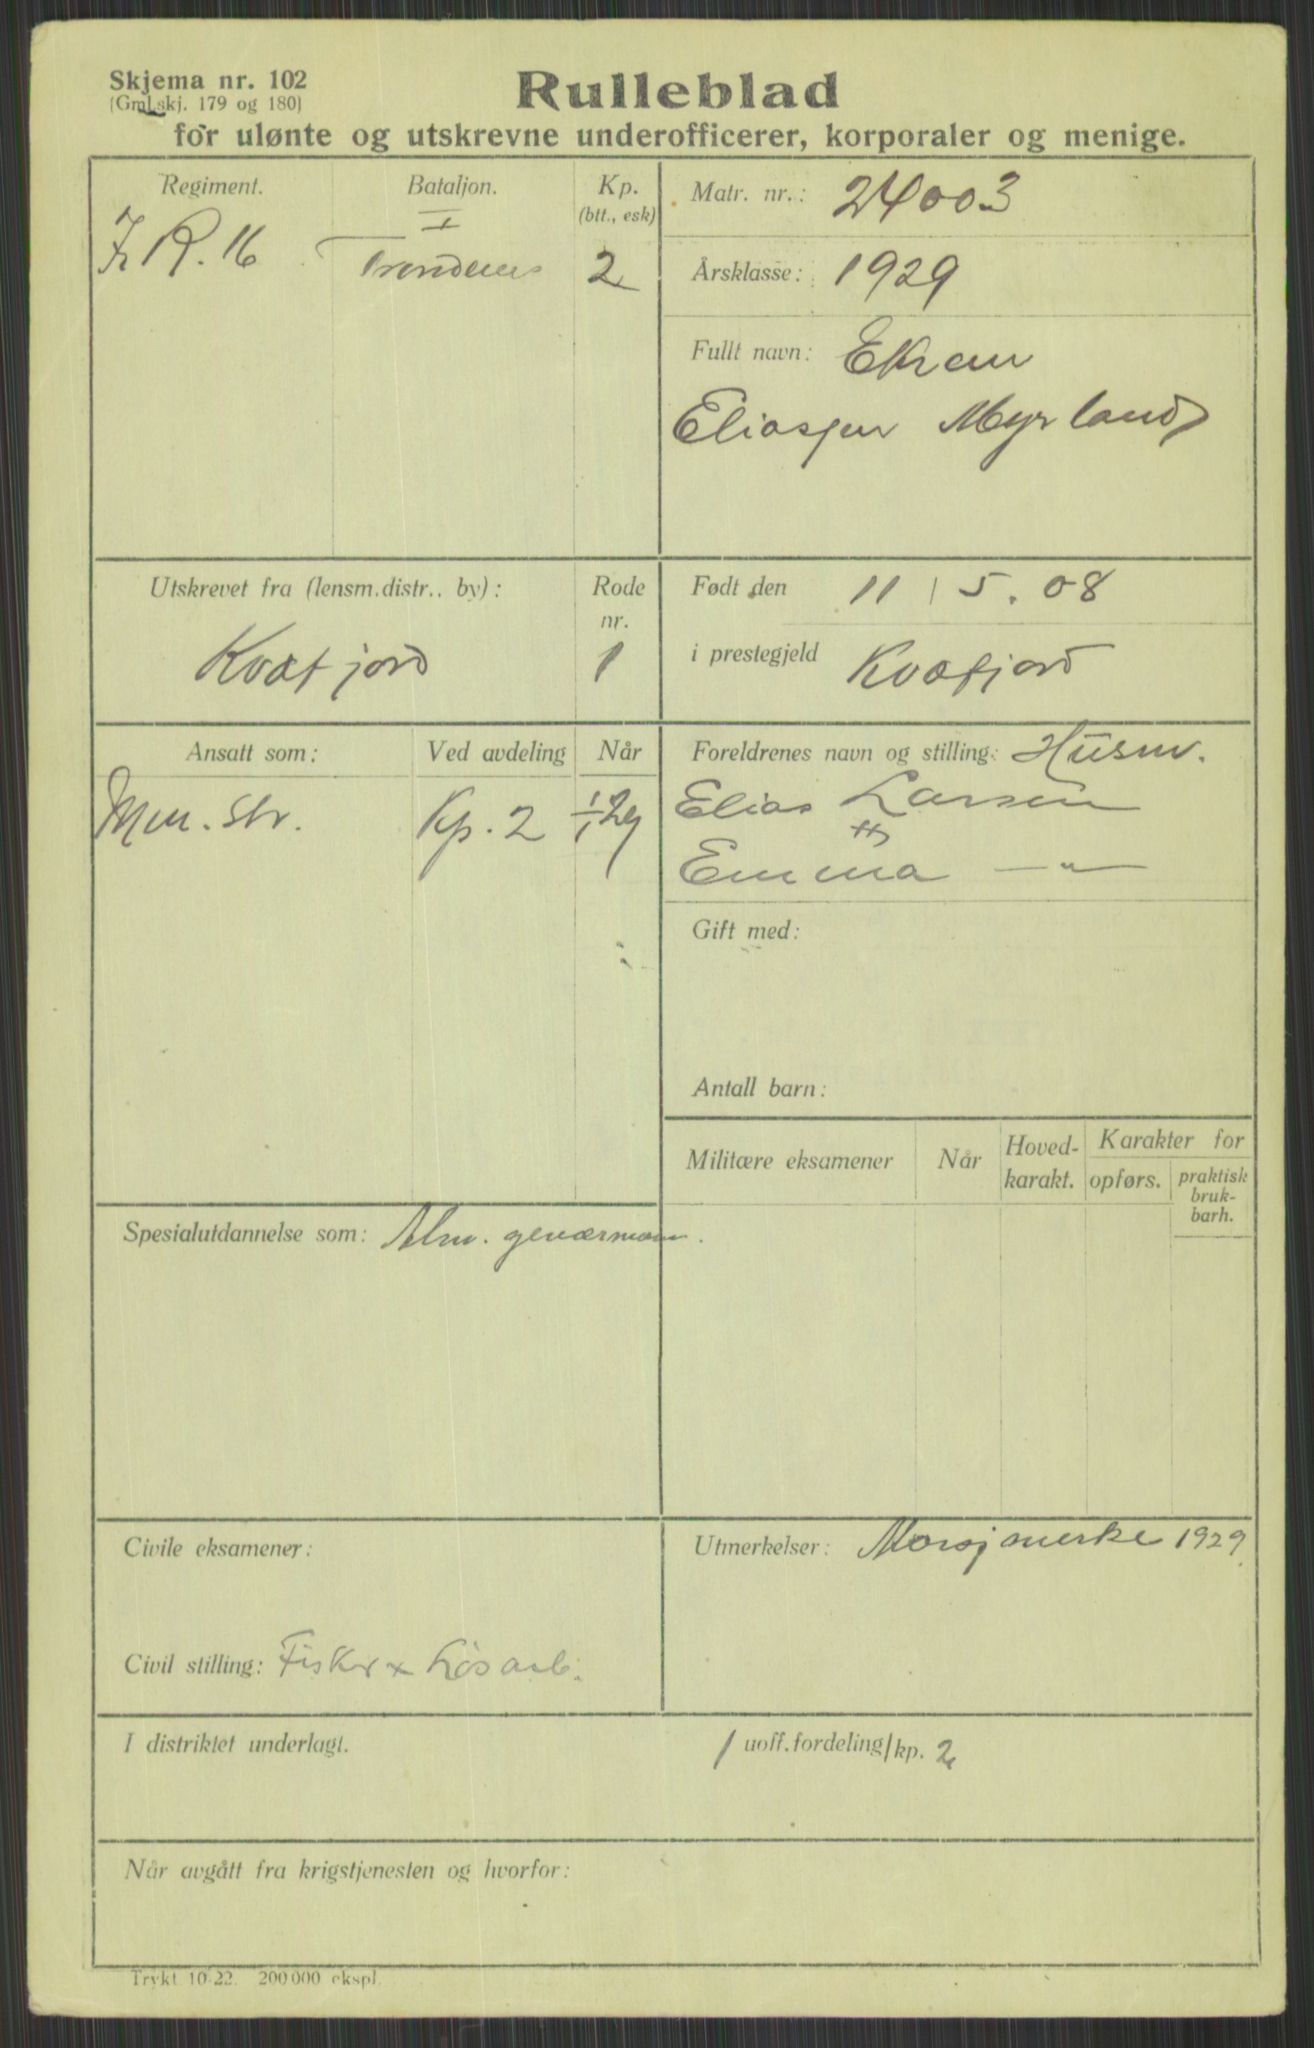 Skjema nr. 102
(Gml. skj. 179 og 180)
Rulleblad
for ulønte og utskrevne underofficerer, korporaler og menige.
Regiment. Bataljon. Kp. (btt., esk)
I. R. 16 I Trondenes 2
Matr. nr.: 24003
Årsklasse: 1929
Fullt navn:
Eliassen Myrland
Utskrevet fra (lensm.distr.. by): Rode nr.
Kvæfjord 1
Født den 11/5.08
i prestegjeld Kvæfjord
Ansatt som: Ved avdeling Når
Men. str. Kp. 2 1/1 29
Foreldrenes navn og stilling: Husm.
Elias Larsen
Emma —"—
Gift med:
Antall barn:
Militære eksamener Når Hoved-karakt. Karakter for
opførs. praktisk bruk-barh.
Spesialutdannelse som: Alm. geværmann.
Civile eksamener:
Civil stilling: Fisker + Løsarb.
Utmerkelser: Marsjmerke 1929.
I distriktet underlagt. / uoff.fordeling/kp. 2
Når avgått fra krigstjenesten og hvorfor:
Trykt 10-22. 200000 ekspl.